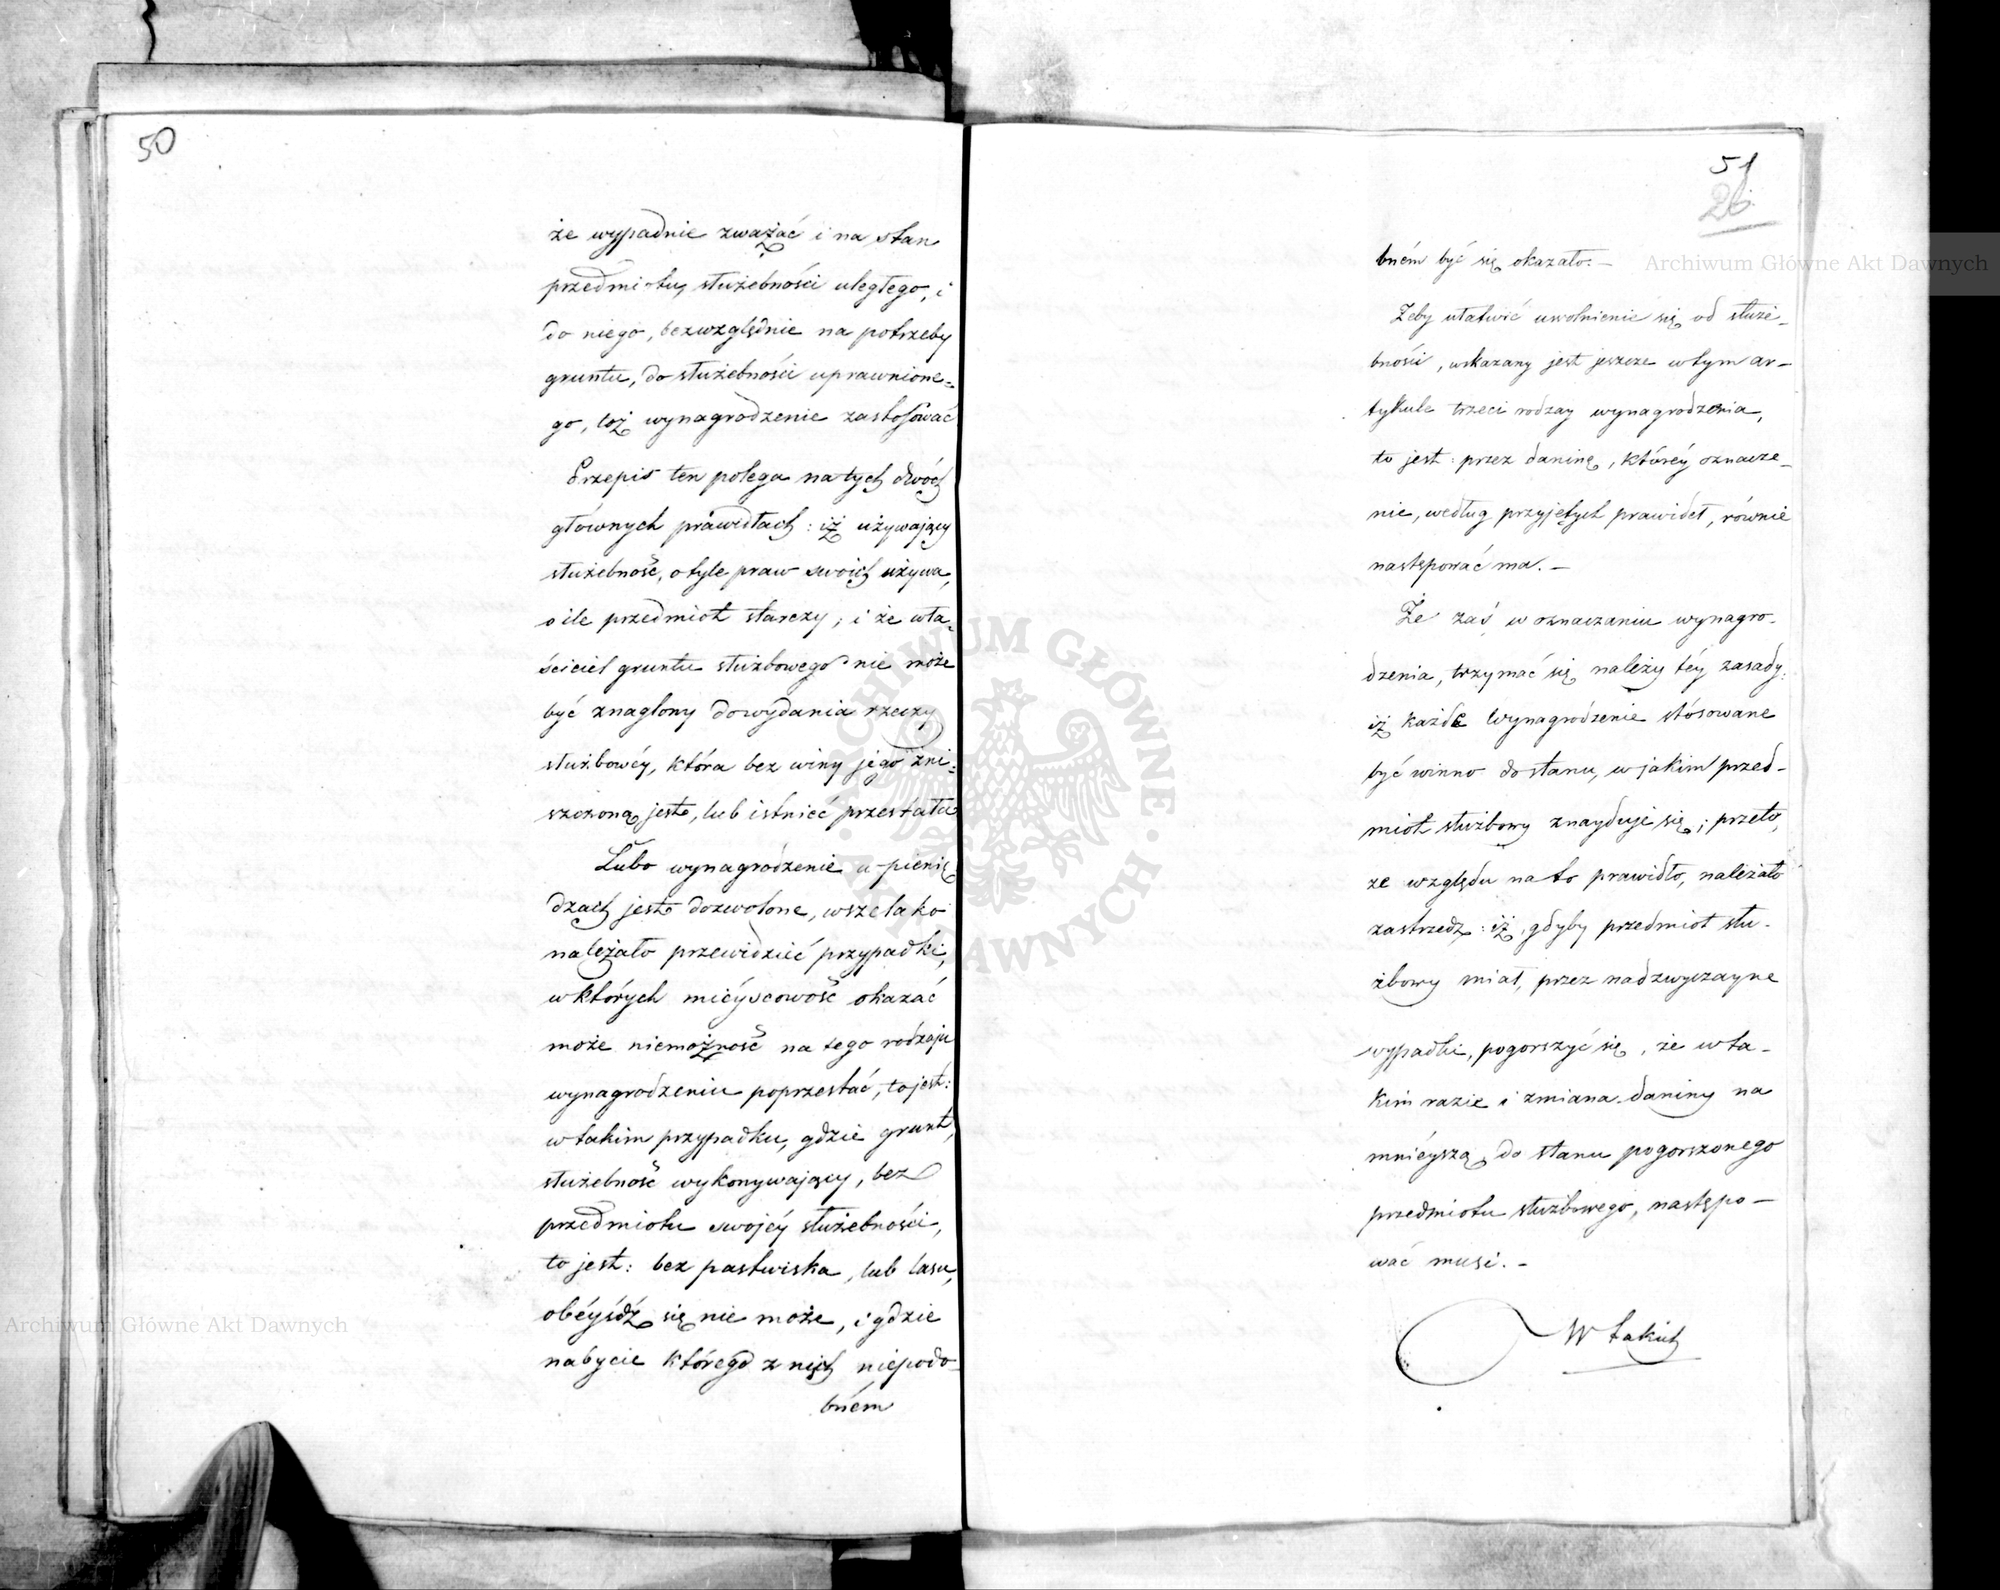 50
że wypadnie zważać i na stan
przedmiotu, służebności uległego, i
do niego, bezwzględnie na potrzeby
gruntu, do służebności uprawnione-
go, toż wynagrodzenie zastosować
Przepis ten polega na tych dwóch
głównych prawidłach: iż używający
służebność, o tyle praw swoich używa,
o ile przedmiot starczy; i że wła-
ściciel gruntu służbowego nie może
być znaglony do wydania rzeczy
służbowéy, która bez winy jego zni-
szczoną jest, lub istnieć przestała
Lubo wynagrodzenie w pienię-
dzach jest dozwolone, wszelako
należało przewidzieć przypadki,
w których mieyscowość okazać
może niemożność na tego rodzaju
wynagrodzeniu poprzestać, to jest:
w takim przypadku, gdzie grunt,
służebność wykonywający, bez
przedmiotu swojéy służebności,
to jest: bez pastwiska, lub lasu,
obéyśdź się nie może, i gdzie
nabycie którego z nich niepodo-
bném
51
26.
bném być się okazało. —
Żeby ułatwić uwolnienie się od służe-
bności, wskazany jest jeszcze w tym ar-
tykule trzeci rodzay wynagrodzenia,
to jest: przez daninę, któréy oznacze-
nie, według przyjętych prawideł, równie
następować ma. —
Że zaś w oznaczaniu wynagro-
dzenia, trzymać się należy téy zasady:
iż każde wynagrodzenie stósowane
być winno do stanu, w jakim przed-
miot służbowy znayduje się; przeto,
ze względu na to prawidło, należało
zastrzedz: iż, gdyby przedmiot słu-
żbowy miał, przez nadzwyczayne
wypadki, pogorszyć się, że w ta-
kim razie i zmiana daniny na
mniéyszą, do stanu pogorszonego
przedmiotu służbowego, następo-
wać musi. —
W takich
Archiwum Główne Akt Dawnych
Archiwum Główne Akt Dawnych
ARCHIWUM GŁÓWNE · AKT DAWNYCH ·